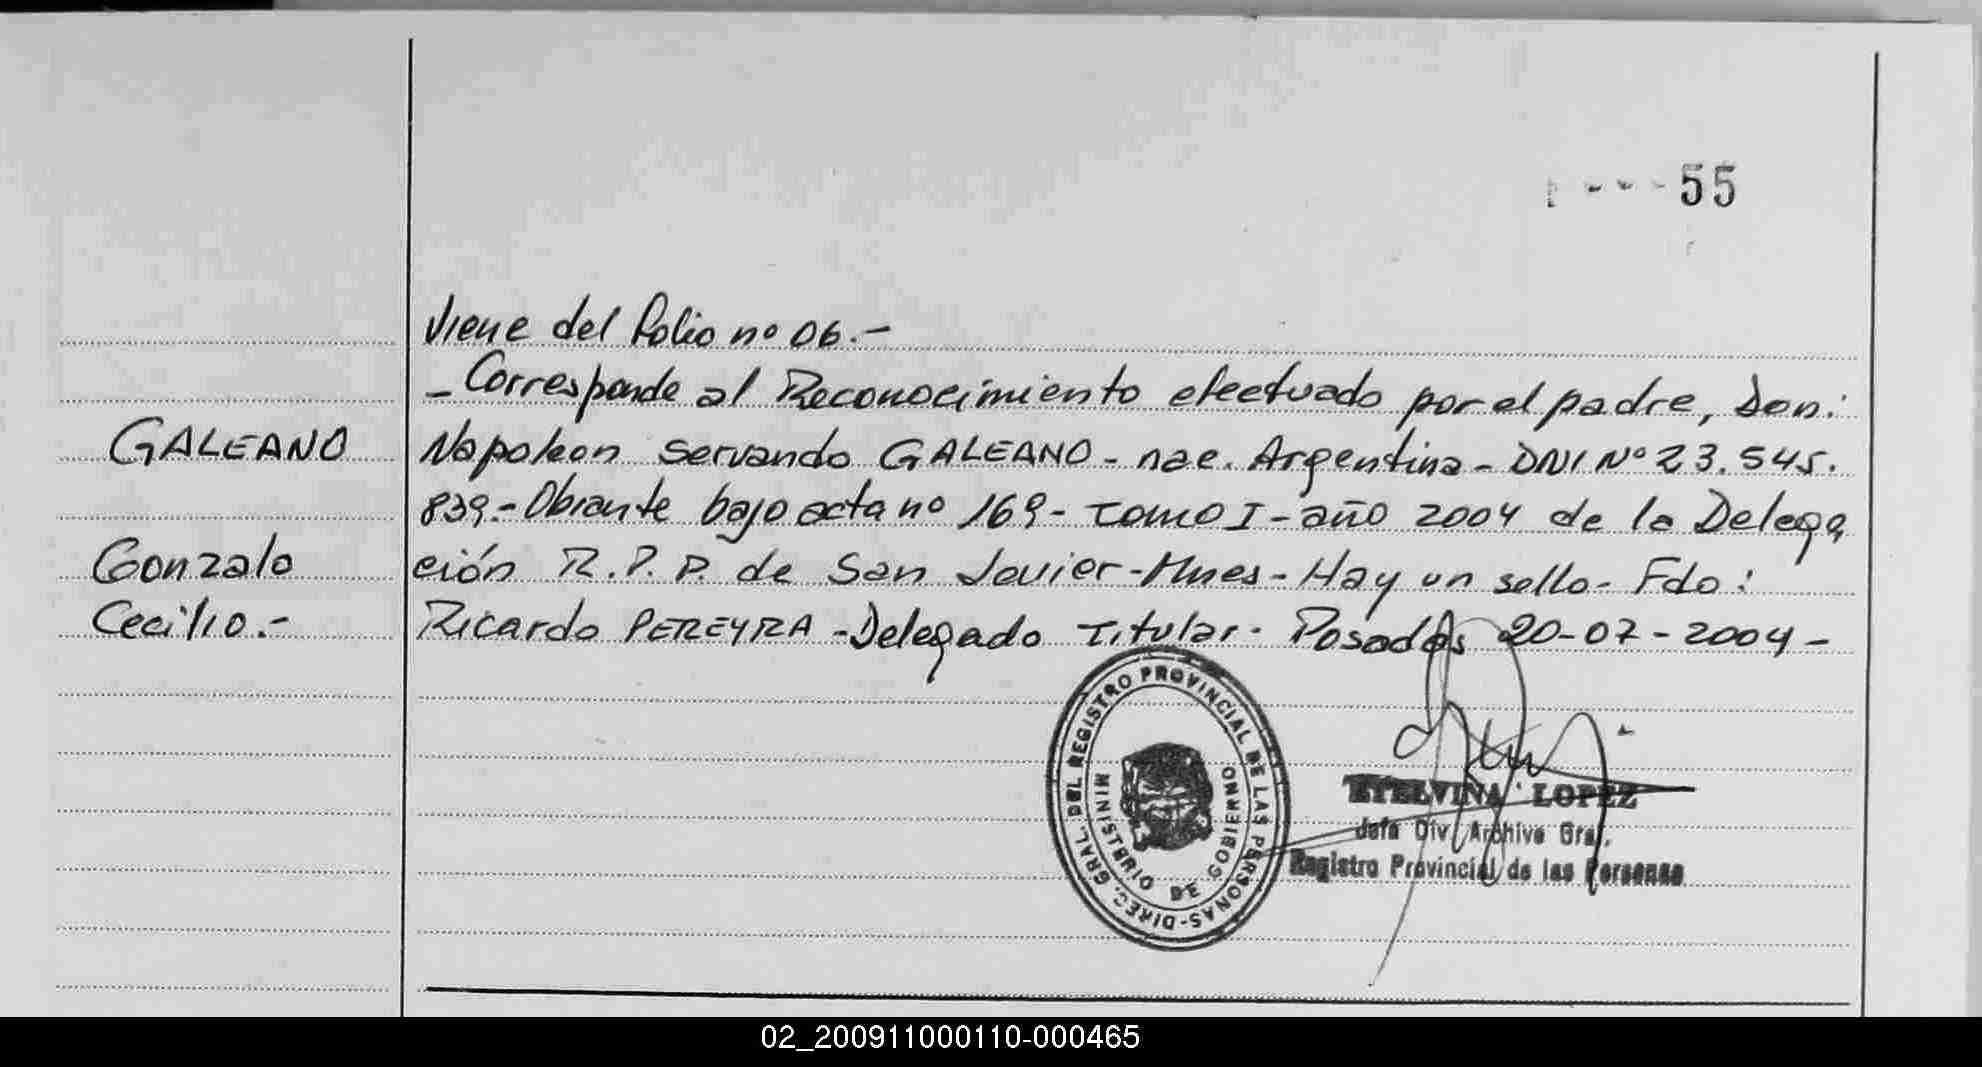 55
Viene del folio nº 06.-
- Corresponde al Reconocimiento efectuado por el padre, Don:
GALEANO
Napoleon Servando GALEANO - nac. Argentina - DNI Nº 23.545.
839.- Obrante bajo acta nº 169 - Tomo I - año 2004 de la Delega
Gonzalo
ción R.P.P. de San Javier - Mnes - Hay un sello - Fdo:
Cecilio.-
Ricardo PEREYRA - Delegado Titular. Posadas 20-07-2004 -
DIREC. GRAL. DEL REGISTRO PROVINCIAL DE LAS PERSONAS-
MINISTERIO DE GOBIERNO
ETELVINA LOPEZ
Jefa Div. Archivo Gral.
Registro Provincial de las Personas
02_200911000110-000465